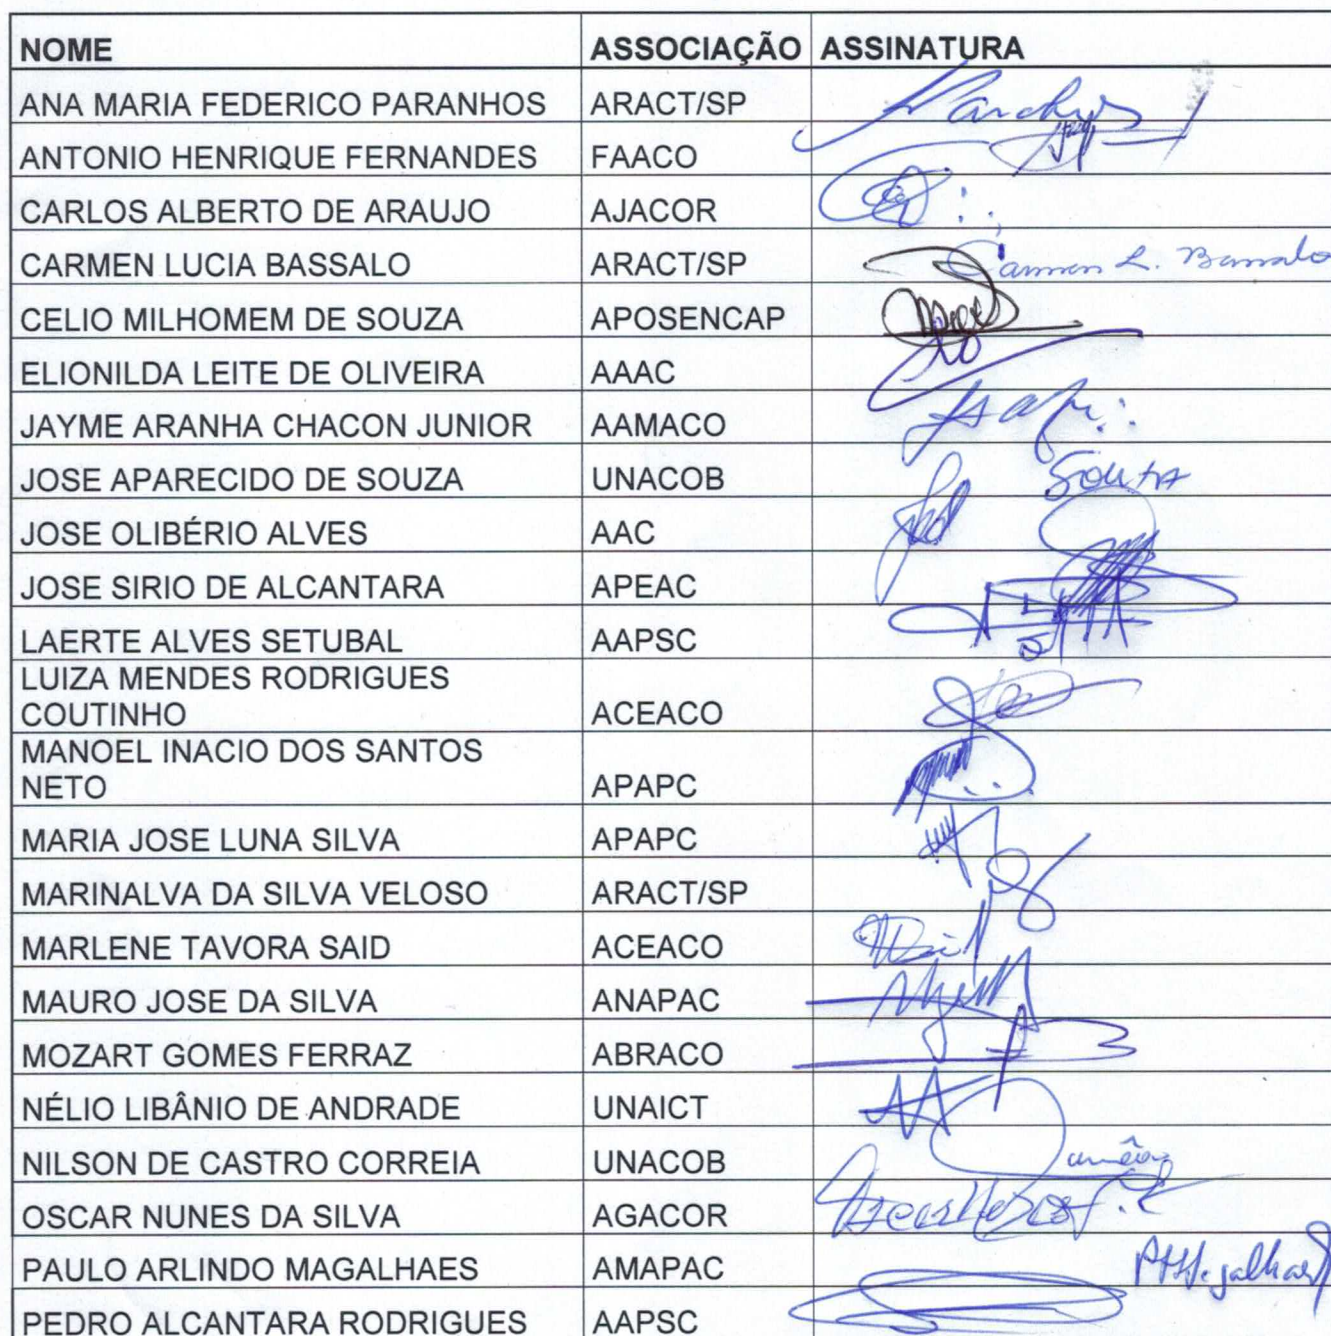 NOME ASSOCIAÇÃO ASSINATURA
ANA MARIA FEDERICO PARANHOS ARACT/SP
ANTONIO HENRIQUE FERNANDES FAACO
CARLOS ALBERTO DE ARAUJO AJACOR
CARMEN LUCIA BASSALO ARACT/SP Carmen L. Bassalo
CELIO MILHOMEM DE SOUZA APOSENCAP
ELIONILDA LEITE DE OLIVEIRA AAAC
JAYME ARANHA CHACON JUNIOR AAMACO
JOSE APARECIDO DE SOUZA UNACOB SOUZA
JOSE OLIBÉRIO ALVES AAC
JOSE SIRIO DE ALCANTARA APEAC
LAERTE ALVES SETUBAL AAPSC
LUIZA MENDES RODRIGUES
COUTINHO ACEACO
MANOEL INACIO DOS SANTOS
NETO APAPC
MARIA JOSE LUNA SILVA APAPC
MARINALVA DA SILVA VELOSO ARACT/SP
MARLENE TAVORA SAID ACEACO
MAURO JOSE DA SILVA ANAPAC
MOZART GOMES FERRAZ ABRACO
NÉLIO LIBÂNIO DE ANDRADE UNAICT
NILSON DE CASTRO CORREIA UNACOB
OSCAR NUNES DA SILVA AGACOR
PAULO ARLINDO MAGALHAES AMAPAC
PEDRO ALCANTARA RODRIGUES AAPSC